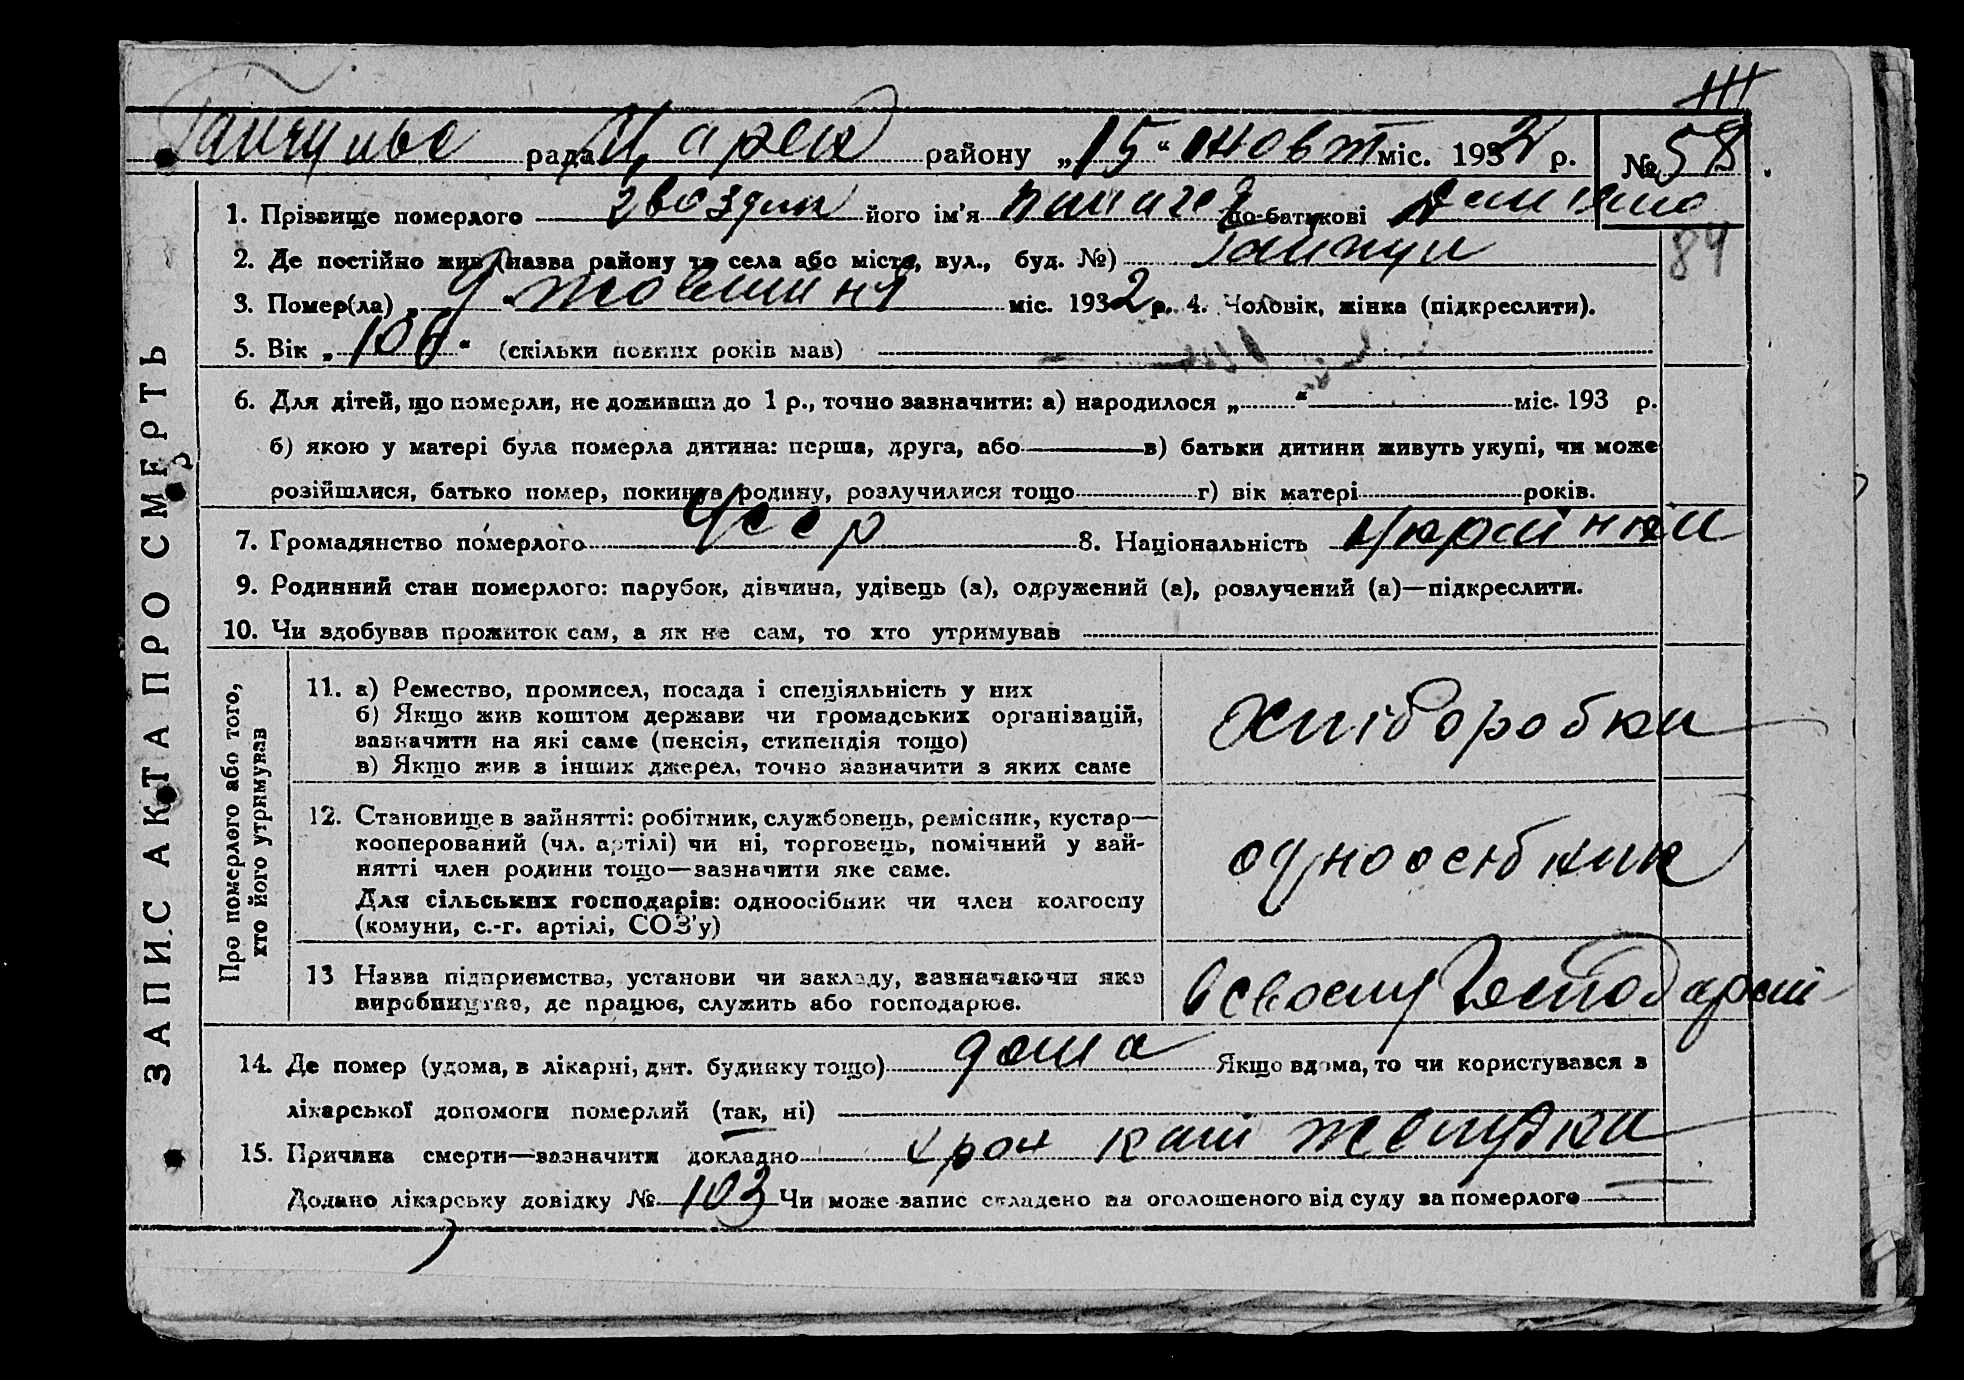 III
Гайчульс рада Царек району „15“ жовт міс. 1932 р. № 58
1. Прізвище померлого Гвоздик його ім'я по-батькові
84
2. Де постійно жив (назва району та села або місто, вул., буд. №) Гайчул
3. Помер(ла) „9“ жовтня міс. 1932 р. 4. Чоловік, жінка (підкреслити).
5. Вік „106“ (скільки повних років мав)
6. Для дітей, що померли, не доживши до 1 р., точно зазначити: а) народилося „ “ міс. 193 р.
б) якою у матері була померла дитина: перша, друга, або в) батьки дитини живуть укупі, чи може
розійшлися, батько помер, покинув родину, розлучилися тощо г) вік матері років.
7. Громадянство померлого Усср 8. Національність
9. Родинний стан померлого: парубок, дівчина, удівець (а), одружений (а), розлучений (а)—підкреслити.
10. Чи здобував прожиток сам, а як не сам, то хто утримував
ЗАПИС АКТА ПРО СМЕРТЬ
Про померлого або того,
хто його утримував
11. а) Ремество, промисел, посада і спеціяльність у них
б) Якщо жив коштом держави чи громадських організацій,
зазначити на які саме (пенсія, стипендія тощо)
в) Якщо жив з інших джерел, точно зазначити з яких саме
хліборобка
12. Становище в зайнятті: робітник, службовець, ремісник, кустар—
кооперований (чл. артілі) чи ні, торговець, помічний у зай-
нятті член родини тощо—зазначити яке саме.
Для сільських господарів: одноосібник чи член колгоспу
(комуни, с.-г. артілі, СОЗ'у)
одноосібник
13 Назва підприємства, установи чи закладу, зазначаючи яке
виробництво, де працює, служить або господарює.
в своему господарсті
14. Де помер (удома, в лікарні, дит. будинку тощо) дома Якщо вдома, то чи користувався з
лікарської допомоги померлий (так, ні)
15. Причина смерти—зазначити докладно хрон кат желудка
Додано лікарську довідку № 103 Чи може запис складено на оголошеного від суду за померлого